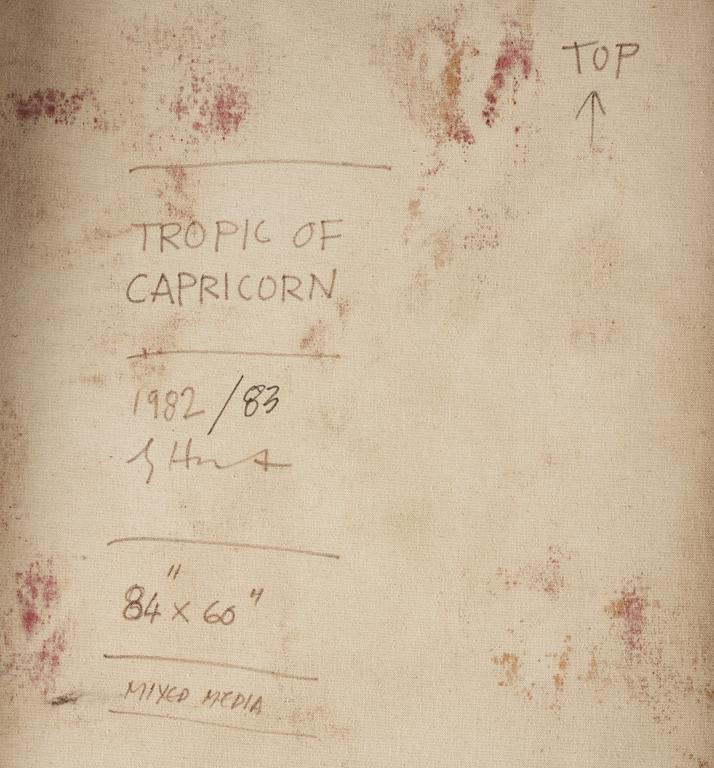 TOP
TROPIC OF
CAPRICORN
1982/83
84" x 60"
MIXED MEDIA